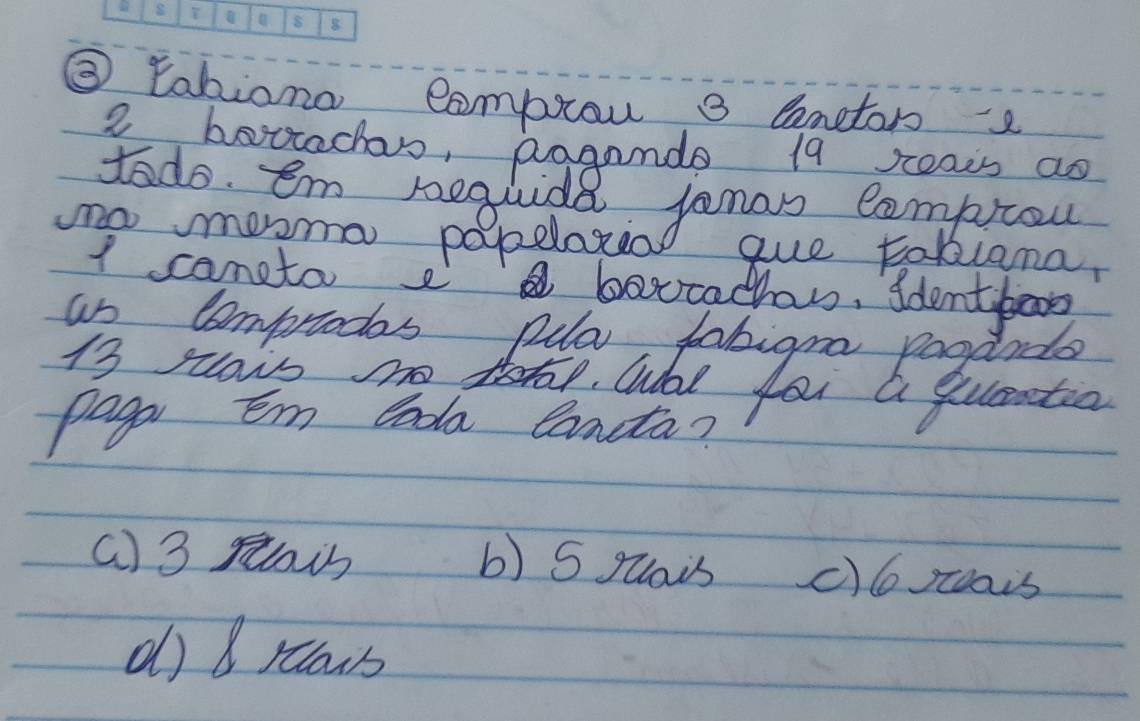 D S T Q Q S S
③ Fabiana comprou 3 canetas e
2 borrachas, pagando 19 reais ao
todo. Em seguida Jonas comprou
na mesma papelaria que Fabiana,
1 caneta e borrachas. Identicas
as compradas pela fabigna pagando
13 reais no total. Qual foi a quantia
paga Em cada caneta?
a) 3 reais b) 5 reais c) 6 reais
d) 8 reais